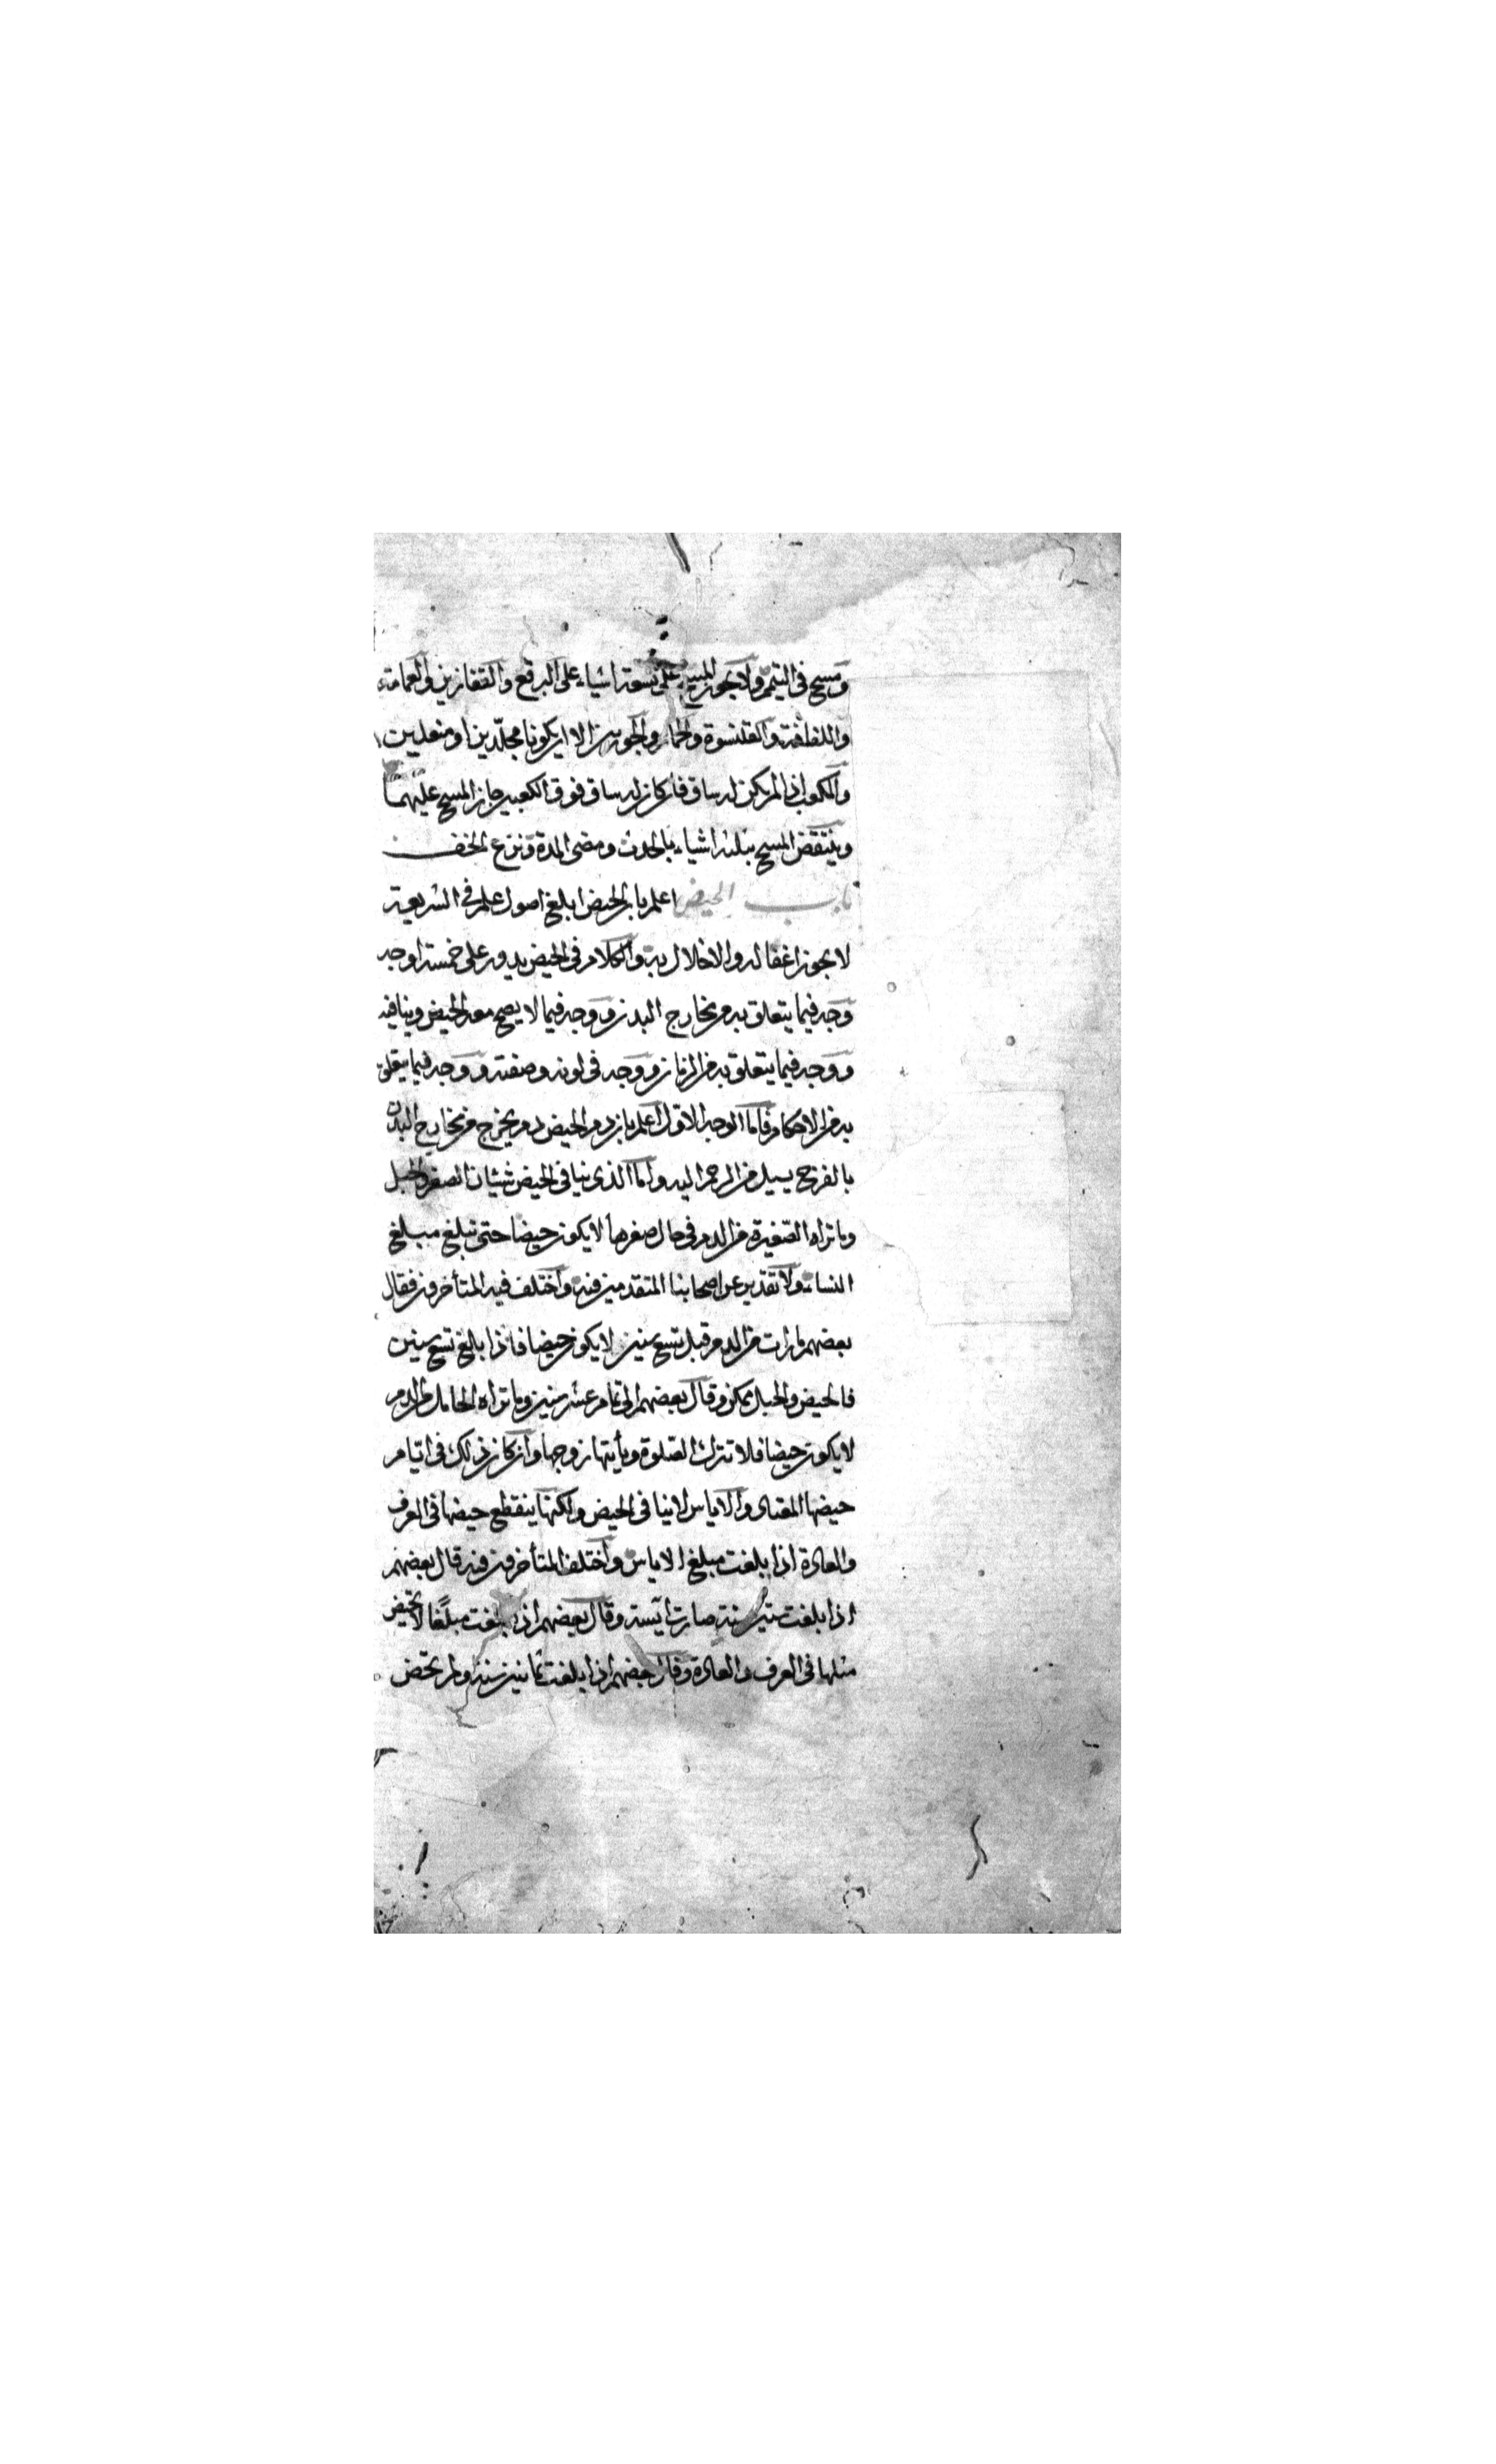 ومسح في التيمم ولا يجوز المسح على تسعة اشياء على البرقع والقفازين والعمامة
واللفافة والقلنسوة والخمار والجوربين الا ان يكونا مجلّدين او منعلين
والكعوب اذا لم يكن له ساق فان كان له ساق فوق الكعبين جاز المسح عليهما
وينتقض المسح بثلثة اشياء بالحدث ومضى المدة ونزع الخف
باب الحيض اعلم بان الحيض ابلغ اصول علم في الشريعة
لا يجوز اغفاله والاخلال به والكلام في الحيض يدور على خمسة اوجه
وجه فيما يتعلق به من مخارج البدن ووجه فيما لا يصح معه الحيض وينافيه
ووجه فيما يتعلق به من الزمان ووجه في لونه وصفته ووجه فيما يتعلق
به من الاحكام فاما الوجه الاول اعلم بان دم الحيض دم يخرج من مخارج البدن
بالفرج يسيل من الرحم اليه واما الذى ينافى الحيض شيئان الصغر والحبل
وما تراه الصغيرة من الدم في حال صغرها لا يكون حيضا حتى تبلغ مبلغ
النساء ولا تقدير عن اصحابنا المتقدمين فيه واختلف فيه المتأخرون فقال
بعضهم ما رات من الدم قبل تسع سنين لا يكون حيضا فاذا بلغ تسع سنين
فالحيض والحبل ممكن وقال بعضهم الى تمام عشر سنين وما تراه الحامل من الدم
لا يكون حيضا فلا تترك الصلوة ويأتيها زوجها وان كان ذلك في ايام
حيضها المعتاد والاياس لا ينافى الحيض ولكنها ينقطع حيضها في العرف
والعادة اذا بلغت مبلغ الاياس واختلف المتأخرون فيه قال بعضهم
اذا بلغت ستين سنة صارت آيسة وقال بعضهم اذا بلغت مبلغا لا تحيض
مثلها في العرف والعادة وقال بعضهم اذا بلغت ثمانين سنة ولم تحض